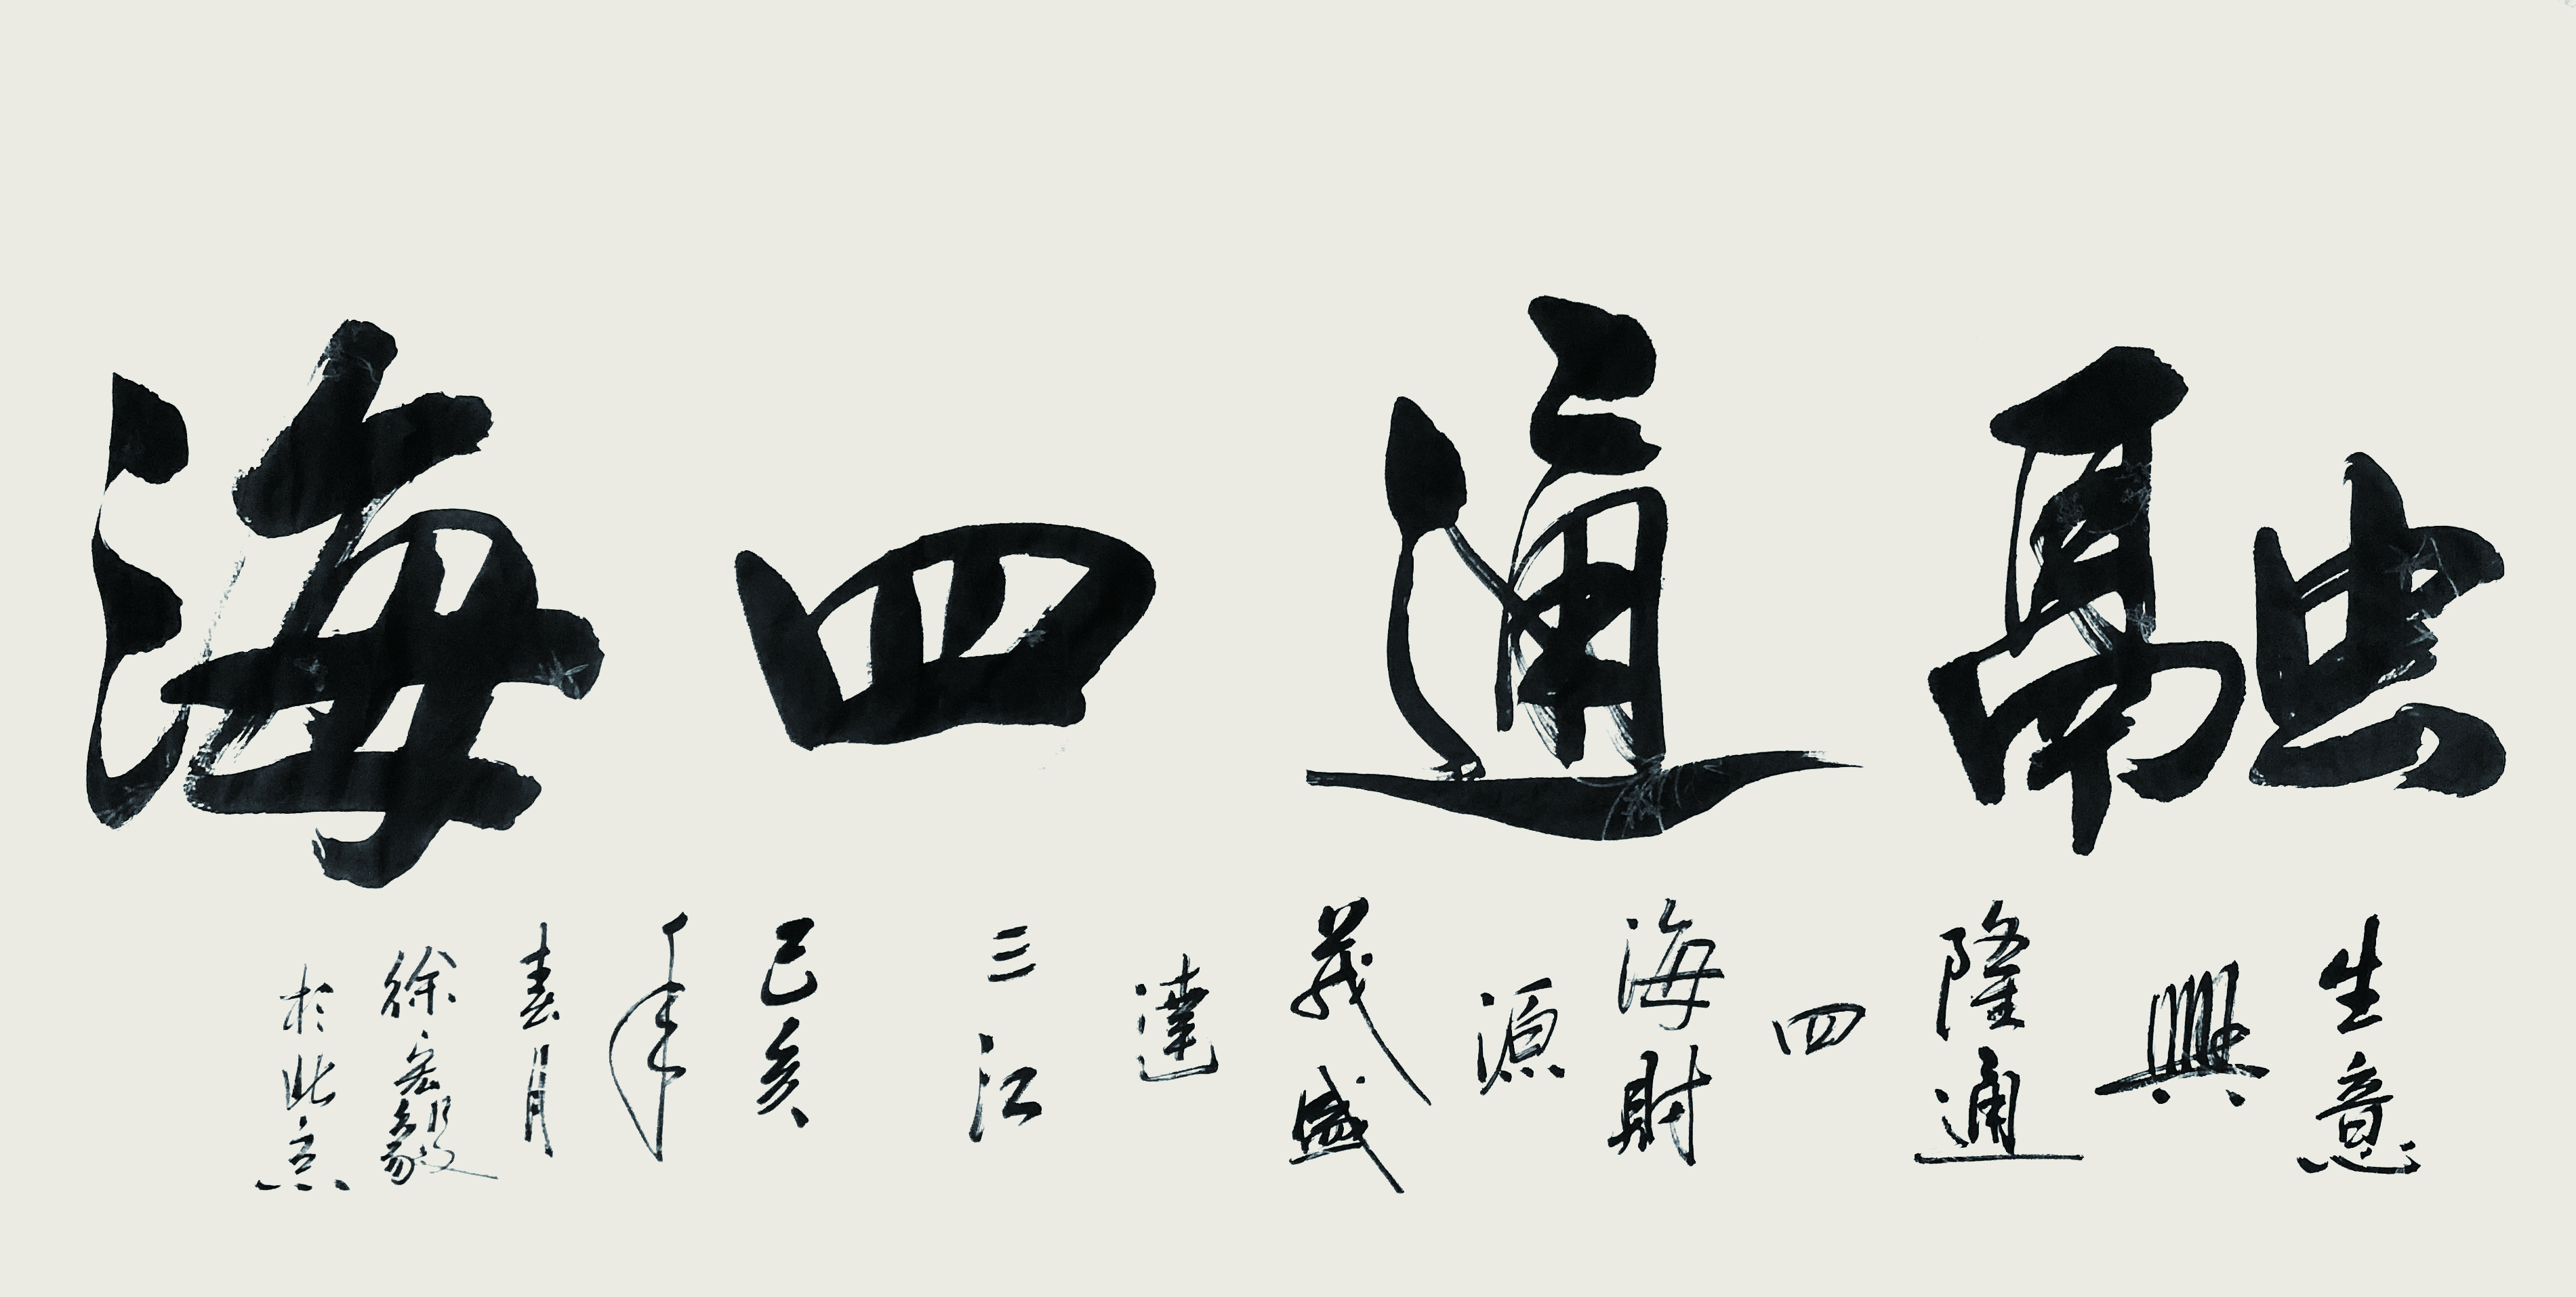 融通四海
生意
興
隆通
四
海財
源
茂盛
達
三江
己亥
年
春月
徐宏毅
於北京